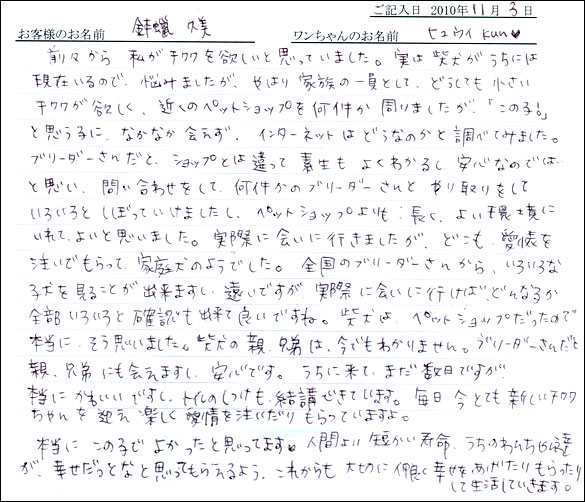 ご記入日 2010年11月3日
お客様のお名前 久美 ワンちゃんのお名前 ヒュウイ kun♥
前々から 私がチワワを欲しいと思っていました。実は柴犬がうちには
現在いるので、悩みましたが、やはり家族の一員として、どうしても小さい
チワワが欲しく、近くのペットショップを何件か周りましたが、「この子!」
と思う子に、なかなか会えず、インターネットはどうなのかと調べてみました。
ブリーダーさんだと、ショップとは違って素生もよくわかるし安心なのでは…
と思い、問い合わせをして、何件かのブリーダーさんとやり取りをして
いろいろとしぼっていけましたし、ペットショップよりも長く、よい環境に
いれて、よいと思いました。実際に会いに行きましたが、どこも、愛情を
注いでもらって、家庭犬のようでした。全国のブリーダーさんから、いろいろな
子犬を見ることが出来ますし、遠いですが、実際に会いに行けば、どんな子か
全部いろいろと確認も出来て良いですね。柴犬は、ペットショップだったので
本当に、そう思いました。柴犬の親、兄弟は、今でもわかりません。ブリーダーさんだと
親、兄弟にも会えますし、安心です。うちに来て、まだ数日ですが
本当にかわいいですし、トイレのしつけも、結構できています。毎日 今とても新しいチワワ
ちゃんを迎え 楽しく愛情を注いだりもらっていますよ。
本当にこの子でよかったと思ってます。人間より短かい寿命、うちのわんちゃん達
が、幸せだったなと思ってもらえるよう、これからも 大切に仲良く幸せをあげたりもらったり
して生活していきます。